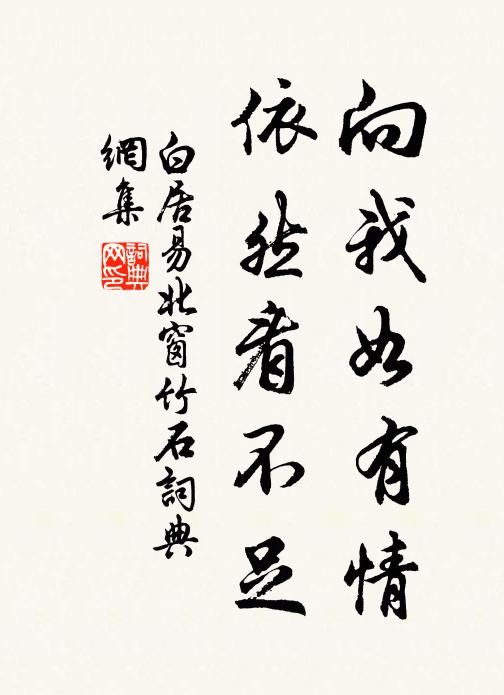 向我如有情
依然看不足
白居易北窗竹石詞典
網集
詞典网印